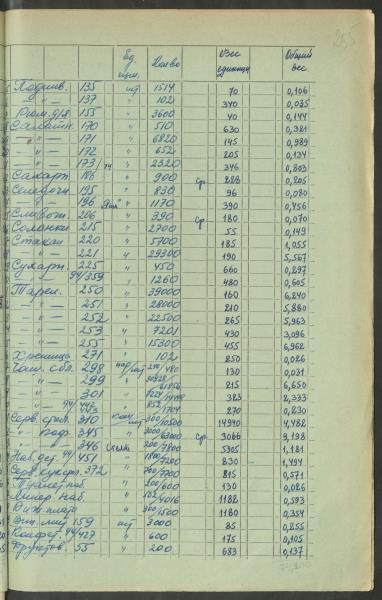 255
Ед. изм. Кол-во Вес единицы Общий вес.
Подшив. 135 шт 1514 70 0,106
— " — 137 " 102 340 0,035
Рюм. д/я 155 " 3600 40 0,144
Салатн. 170 " 510 630 0,321
— " — 171 " 6820 145 0,989
— " — 172 " 652 205 0,134
— " — 173 " 2320 346 0,803
Сахарн. 186 " 900 ср. 228 0,205
Селедочн. 195 " 830 96 0,080
— " — 196 " 1170 390 0,456
Сливочн. 206 " 390 ср. 180 0,070
Солонки 215 " 2700 55 0,149
Стакан 220 " 5700 185 1,055
— " — 221 " 29300 190 5,567
Сухарн. 225 " 450 660 0,297
— " — 94/359 " 1260 480 0,605
Тарел. 250 " 39000 160 6,240
— " — 251 " 28000 210 5,880
— " — 252 " 22500 265 5,963
— " — 253 " 7201 430 3,096
— " — 255 " 15300 455 6,962
Хренница 271 " 102 250 0,026
Чаш. с бл. 298 пар/шт 240/480 130 0,031
— " — 299 " 30928/61856 215 6,650
— " — 301 " 383 2,333
— " — 94 442/443 " 852/1704 270 0,230
Серв. 310 комп/шт 300/10500 14940 4,482
— " — коф. 345 " 3000/63000 ср. 3066 9,198
— " — " — 346 " 200/7800 5905 1,181
Наб. дет. 94/451 " 1800/7200 830 1,494
372 " 700/7700 815 0,571
Туалет. наб " 200/600 130 0,026
Ликер. наб. " 502/4016 1182 0,593
" 300/1500 1180 0,354
159 шт 3000 85 0,255
Конфет. 94/427 " 600 175 0,105
Фруктов. 55 " 200 683 0,137